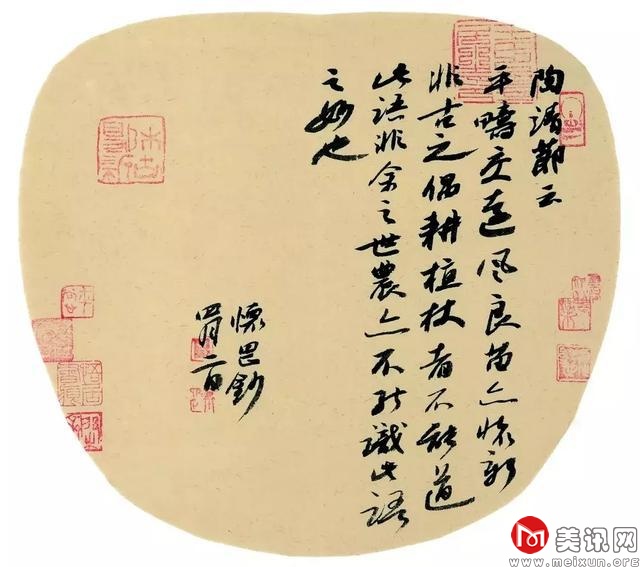 陶靖節云
平疇交遠風良苗亦懷新
非古之偶耕植杖者不能道
此語非余之世農亦不能識此語
之妙也
懷鈔
美讯网
www.meixun.org